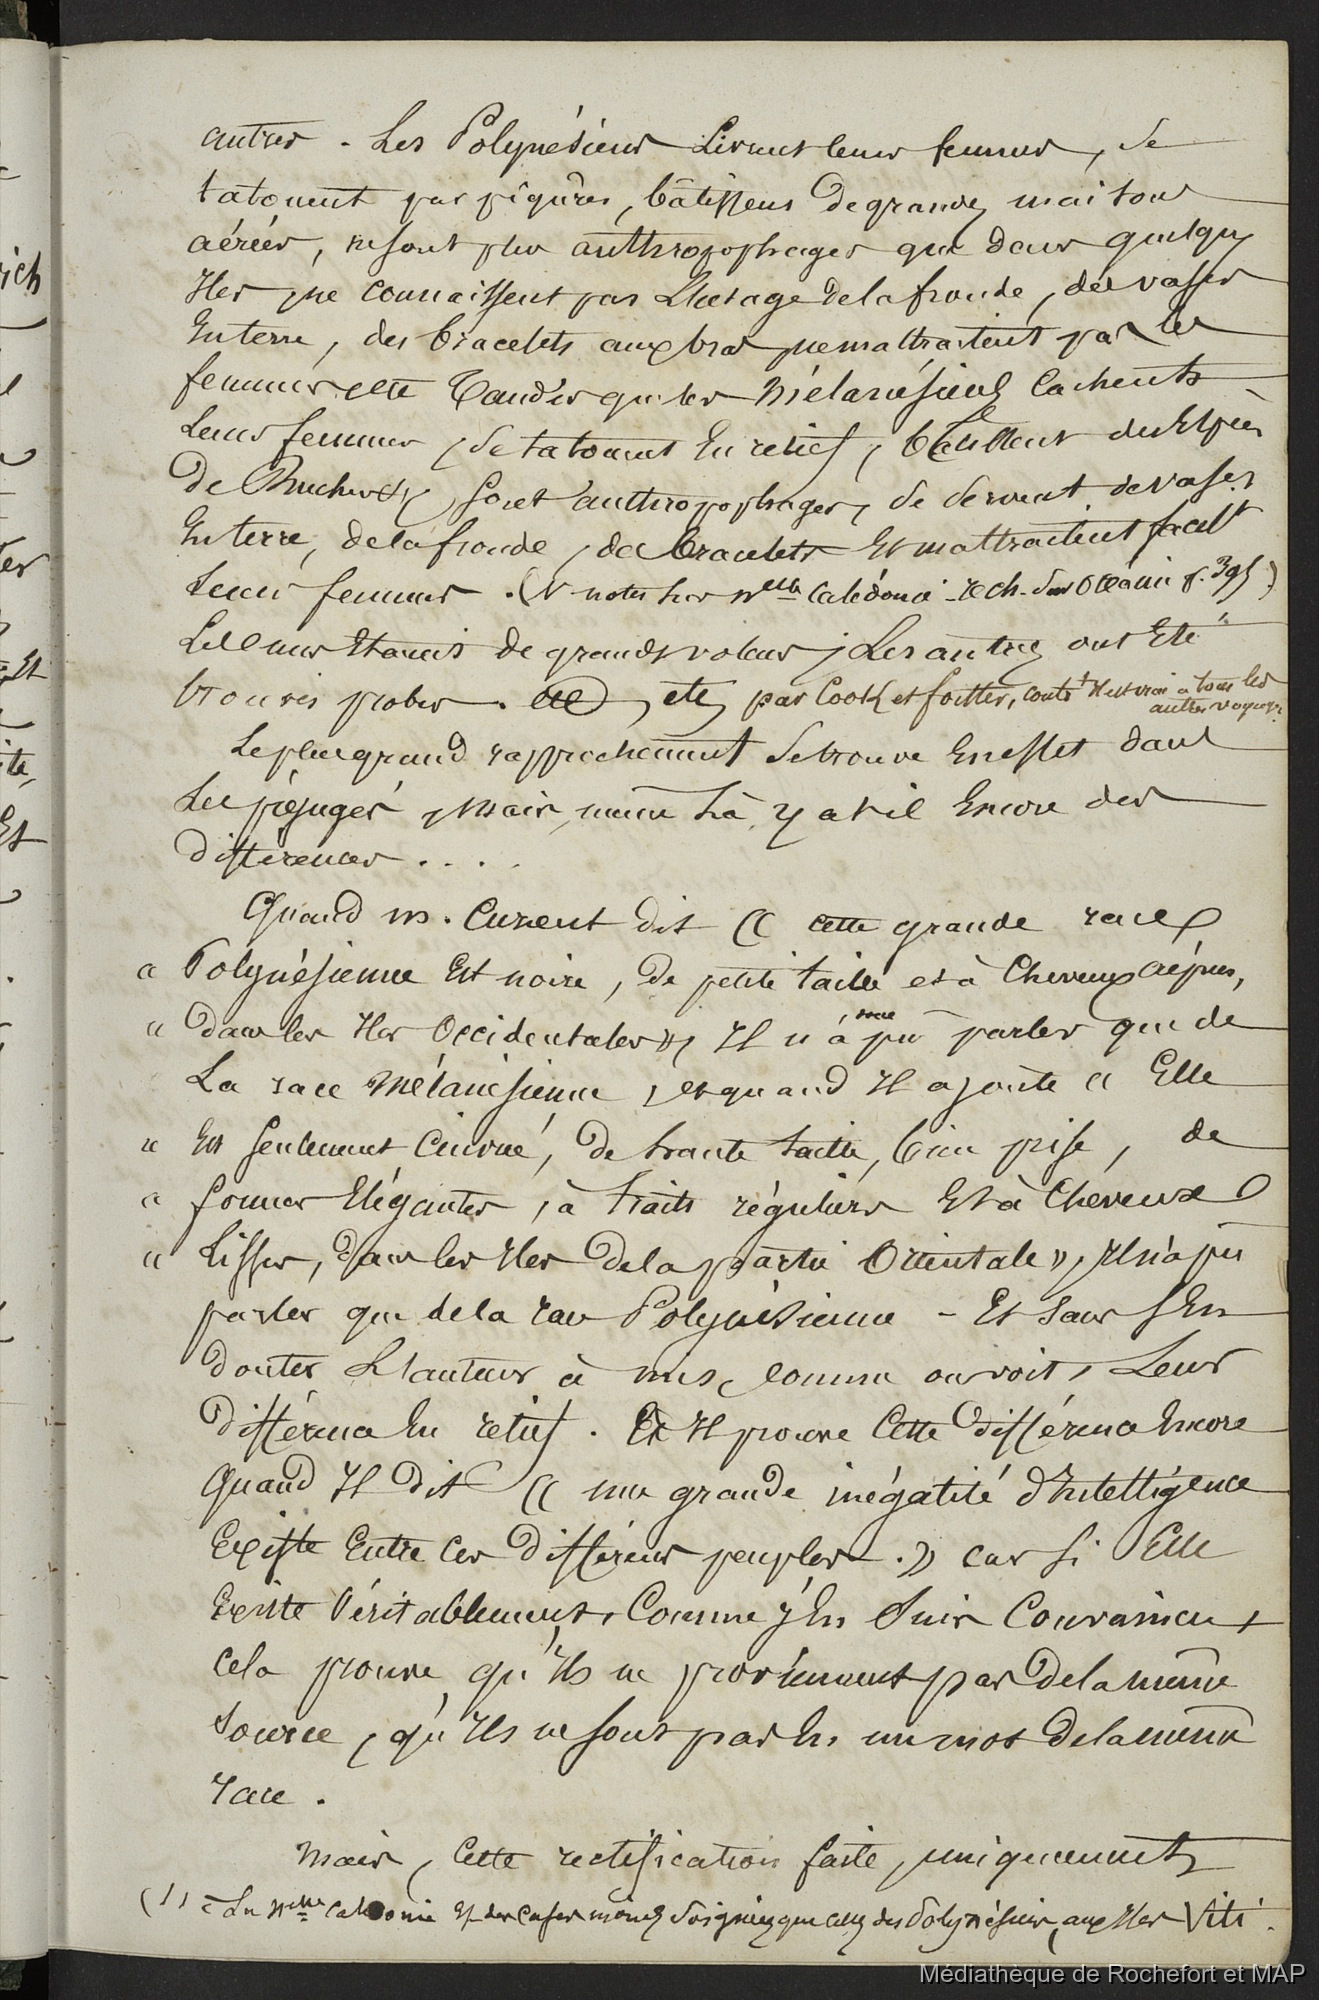 autres. Les Polynésiens livrent leurs femmes, se
tatouent par piqûres, bâtissent de grandes maisons
aérées, ne sont plus anthropophages que dans quelques
Iles, ne connaissent pas l'usage de la fronde, des vases
En terre, des bracelets aux bras, ne maltraitent pas les
femmes ettc Tandis que les Mélanésiens cachent
Leurs femmes, se tatouent En relief, bâtissent des Espèces
De Ruches (1), sont anthropophages, se servent de vases
En terre, de la fronde, de bracelets Et maltraitent facilt
Leurs femmes. (V. notes sur Nlle Calédonie - rech. sur Océanie p. 395)
Les uns Etaient de grands voleurs, Les autres ont Eté
trouvés probes. etc, etc, par Cook et Forster, contt Il est vrai à tous les
autres voyageurs
Le plus grand rapprochement se trouve En effet dans
Les préjugés, Mais, même là, y a t'il Encore des
différences . . . .
Quand M. Cuzent dit « cette grande race
« Polynésienne Est noire, De petite taille et à Cheveux crépus,
« dans les Iles Occidentales », Il n'a pu parler que de
La race Mélanésienne, et quand Il ajoute « Elle
« Est seulement Cuivrée, De haute taille, bien prise, de
« formes Elégantes, à traits réguliers Et à Cheveux
« Lisses, Dans les Iles De la partie Orientale », Il n'a pu
parler que de la race Polynésienne - Et sans s'En
douter L'auteur a mis, comme on voit, Leur
différence En relief. Et Il prouve Cette différence Encore
Quand Il Dit « une grande inégalité d'Intelligence
Existe Entre ces différens peuples. » car si Elle
Existe Véritablement, Comme j'En suis Convaincu,
cela prouve qu'Ils ne proviennent pas De la même
source, qu'Ils ne sont pas En un mot De la même
race.
Mais, Cette rectification faite, uniquement
(1) En Nlle Calédonie Et des Cases moins soignées que celles des Polynésiens, aux Iles Viti.
Médiathèque de Rochefort et MAP